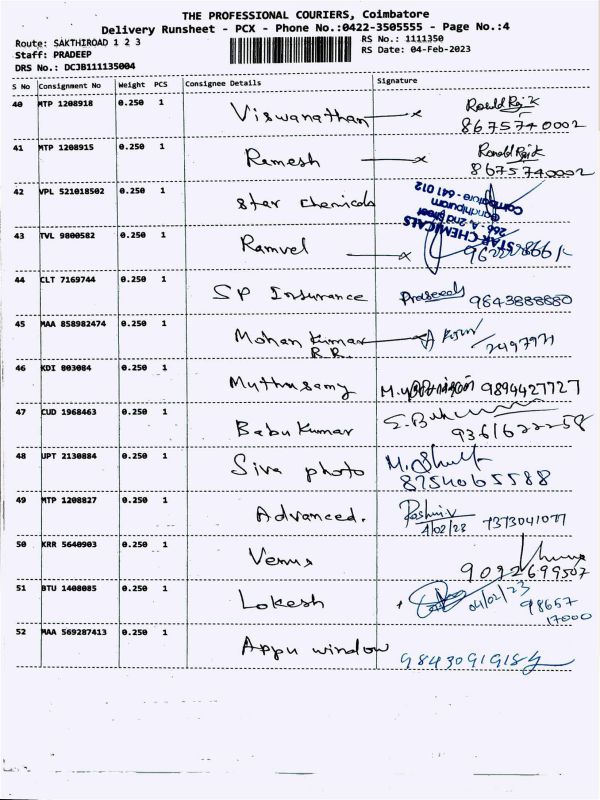 THE PROFESSIONAL COURIERS, Coimbatore
Delivery Runsheet - PCX - Phone No.:0422-3505555 - Page No.:4
Route: SAKTHIROAD 1 2 3
RS No.: 1111350
Staff: PRADEEP
RS Date: 04-Feb-2023
DRS No.: DCJB111135004
S No Consignment No Weight PCS Consignee Details Signature
40 MTP 1208918 0.250 1 Viswanathan Ronald Raj.K
8675740002
41 MTP 1208915 0.250 1 Ramesh Ronald Raj.K
8675740002
42 VPL 521018502 0.250 1 Star Chemicals
STAR CHEMICALS
266 - A, 2nd Street
Gandhipuram
Coimbatore - 641 012
43 TVL 9800582 0.250 1 Ramvel
44 CLT 7169744 0.250 1 SP Insurance Praseeda 9843888880
45 MAA 858982474 0.250 1 Mohan Kumar
R.R.
46 KDI 803084 0.250 1 Muthusamy 9894427727
47 CUD 1968463 0.250 1 Babu Kumar
9361622258
48 UPT 2130884 0.250 1 Siva photo
8754065588
49 MTP 1208827 0.250 1 Advanced. Reshmi.V
4/02/23 7373041077
50 KRR 5640903 0.250 1 Venus
9092699507
51 BTU 1408085 0.250 1 Lokesh 04/02/23 98657
17000
52 MAA 569287413 0.250 1 Appu window